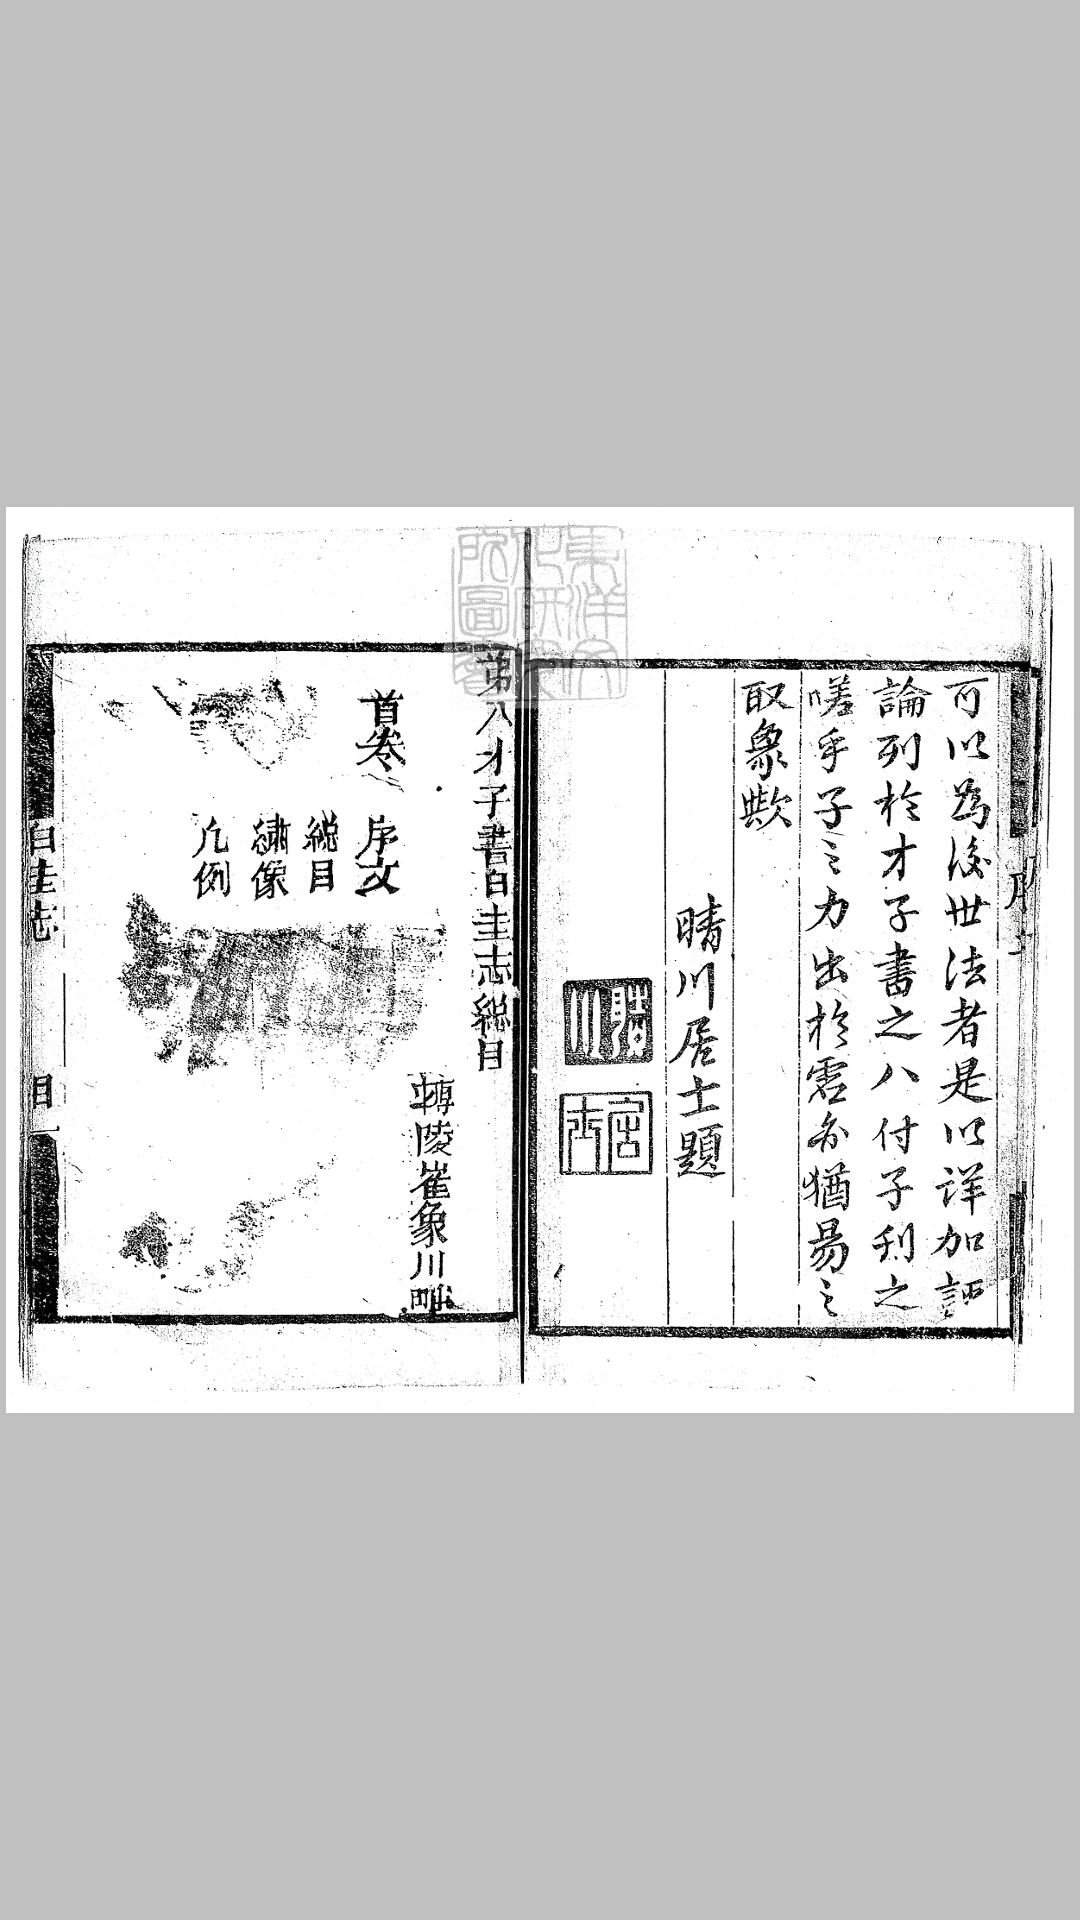 可以爲後世法者是以詳加評
論列於才子書之八付子刊之
嗟乎子之力出於震亦猶易之
取象歟
晴川居士題
晴川
居士
第八才子書白圭志総目
博陵崔象川
首卷
序文
総目
繡像
凡例
白圭志
目一
東洋文
化研究
所圖書